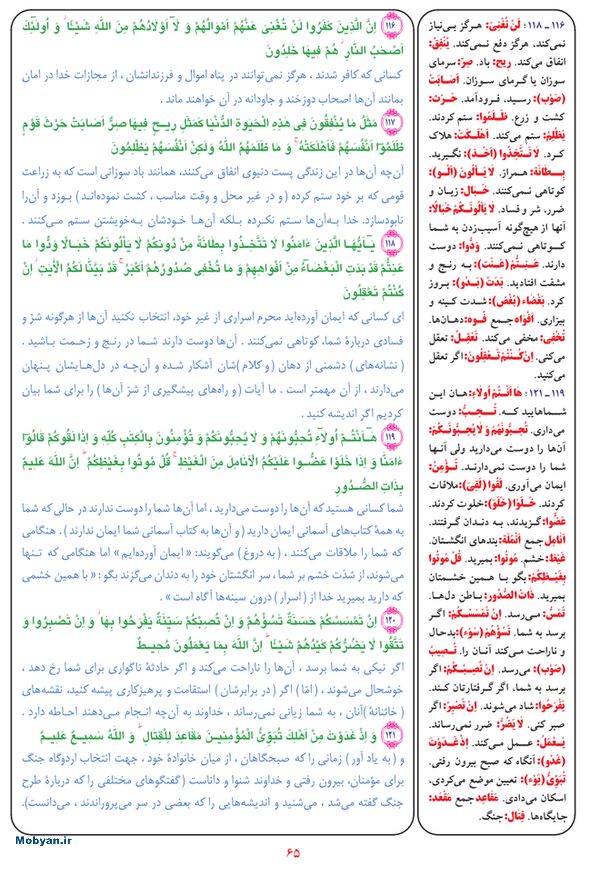 ۱۱۶ اِنَّ الَّذينَ كَفَرُوا لَنْ تُغْنِىَ عَنْهُمْ اَمْوَالُهُمْ وَ لاۤ اَوْلَادُهُمْ مِنَ اللهِ شَيْئًا ۖ وَ اُولٰۤئِكَ
اَصْحٰبُ النَّارِ ۚ هُمْ فيهَا خٰلِدُونَ
کسانی که کافر شدند ، هرگز نمی‌توانند در پناه اموال و فرزندانشان ، از مجازات خدا در امان
بمانند آن‌ها اصحاب دوزخند و جاودانه در آن خواهند ماند .
۱۱۷ مَثَلُ مَا يُنْفِقُونَ فى هٰذِهِ الْحَيٰوةِ الدُّنْيَا كَمَثَلِ ريـحٍ فيهَا صِرٌّ اَصَابَتْ حَرْثَ قَوْمٍ
ظَلَمُوۤا اَنْفُسَهُمْ فَاَهْلَكَتْهُ ۚ وَ مَا ظَلَمَهُمُ اللهُ وَلٰكِنْ اَنْفُسَهُمْ يَظْلِمُونَ
آن‌چه آن‌ها در این زندگی پست دنیوی انفاق می‌کنند، همانند باد سوزانی است که به زراعت
قومی که بر خود ستم کرده (و در غیر محل و وقت مناسب ، کشت نموده‌اند) بوزد و آن‌را
نابودسازد. خدا به‌آن‌ها ستم نکرده بـلکه آن‌هـا خـودشان به‌خویشتن ستـم می‌کنند .
۱۱۸ يٰۤـاَيُّهَا الَّذينَ ءَامَنُوا لَا تَتَّخِـذُوا بِطَانَةً مِنْ دُونِكُمْ لَا يَأْلُونَكُمْ خَبَـالًا وَدُّوا مَا
عَنِتُّمْ قَدْ بَدَتِ الْبَغْضَاۤءُ مِنْ اَفْوَاهِهِمْ وَ مَا تُخْفى صُدُورُهُمْ اَكْبَرُ ۚ قَدْ بَيَّنَّا لَكُمُ الْاٰيٰتِ ۖ اِنْ
كُنْتُمْ تَعْقِلُونَ
ای کسانی که ایمان آورده‌اید محرم اسراری از غیر خود، انتخاب نکنید آن‌ها از هرگونه شرّ و
فسادی دربارهٔ شما، کوتاهی نمی‌کنند . آن‌ها دوست دارند شما در رنج و زحمت باشید .
(نشانه‌های) دشمنی از دهان (و کلام)شان آشکار شده و آن‌چه در دل‌هـایشان پنهان
می‌دارند ، از آن مهمتر است . ما آیات (و راه‌های پیشگیری از شرّ آن‌ها) را برای شما بیان
کردیم اگر اندیشه کنید .
۱۱۹ هٰۤـاَنْتُـمْ اُولاۤءِ تُحِبُّونَهُمْ وَ لَا يُحِبُّونَكُمْ وَ تُؤْمِنُونَ بِالْكِتٰبِ كُلِّهٖ وَ اِذَا لَقُوكُمْ قَالُوۤا
ءَامَنَّا وَ اِذَا خَلَوْا عَضُّـوا عَلَيْكُمُ الْاَنَامِلَ مِنَ الْغَيْظِ ۚ قُلْ مُوتُوا بِغَيْظِكُمْ ۗ اِنَّ اللهَ عَليمٌ
بِذَاتِ الصُّـدُورِ
شما کسانی هستید که آن‌ها را دوست می‌دارید ، اما آن‌ها شما را دوست ندارند در حالی که شما
به همهٔ کتاب‌های آسمانی ایمان دارید (و آن‌ها به کتاب آسمانی شما ایمان ندارند) . هنگامی
که شما را ملاقات می‌کنند ، (به دروغ) می‌گویند: « ایمان آورده‌ایم » اما هنگامی که تـنها
می‌شوند، از شدّت خشم بر شما ، سر انگشتان خود را به دندان می‌گزند بگو: « با همین خشمی
که دارید بمیرید خدا از (اسرار) درون سینه‌ها آگاه است » .
۱۲۰ اِنْ تَمْسَسْكُمْ حَسَنَةٌ تَسُؤْهُمْ وَ اِنْ تُصِبْكُمْ سَيِّئَةٌ يَفْرَحُوا بِهَا ۖ وَ اِنْ تَصْبِرُوا وَ
تَتَّقُوا لَا يَضُرُّكُمْ كَيْدُهُمْ شَيْئًا ۗ اِنَّ اللهَ بِمَا يَعْمَلُونَ مُحيـطٌ
اگر نیکی به شما برسد ، آن‌ها را ناراحت می‌کند و اگر حادثهٔ ناگواری برای شما رخ دهد ،
خوشحال می‌شوند ، (امّا) اگر (در برابرشان) استقامت و پرهیزکاری پیشه کنید، نقشه‌های
(خائنانهٔ)آنان ، به شما زیانی نمی‌رساند ، خداوند به آن‌چه انجام می‌دهند احاطه دارد .
۱۲۱ وَ اِذْ غَدَوْتَ مِنْ اَهْلِكَ تُبَوِّئُ الْمُؤْمِنينَ مَقَاعِدَ لِلْقِتَالِ ۗ وَ اللهُ سَميعٌ عَليمٌ
و (به یاد آور) زمانی را که صبحگاهان ، از میان خانوادهٔ خود ، جهت انتخاب اردوگاه جنگ
برای مؤمنان، بیرون رفتی و خداوند شنوا و داناست (گفتگوهای مختلفی را که دربارهٔ طرح
جنگ گفته می‌شد ، می‌شنید و اندیشه‌هایی را که بعضی در سر می‌پروراندند ، می‌دانست).
۱۱۶ ـ ۱۱۸ : لَنْ تُغْنِىَ: هـرگز بی‌نیاز
نمی‌کند، هرگز دفع نمی‌کند. يُنْفِقُ:
انفاق می‌کند. ريح: باد. صِرّ: سرمای
سوزان یا گرمای سوزان. اَصَابَتْ
(صَوْب): رسید، فرودآمد. حَرْث:
کشت و زرع. ظَلَمُوا: ستم کردند.
يَظْلِمُ: ستم می‌کند. اَهْلَكَتْ: هلاک
کرد. لَا تَتَّخِذُوا (اَخْذ): نگیرید.
بِطَانَة: همراز. لَا يَأْلُونَ (اَلْو):
کوتاهی نمی‌کنند. خَبَال: زیان و
ضرر، شر و فساد. لَا يَأْلُونَكُمْ خَبَالًا:
آنها از هیچ‌گونه آسیب‌زدن به شما
کـوتاهی نمـی‌کنند. وَدُّوا: دوست
دارند. عَنِتُّمْ (عَنَت): به رنج و
مشقت افتادید. بَدَتْ (بَدْو): بروز
کرد. بَغْضَاء (بُغْض): شدت کینه و
بیزاری. اَفْوَاه جمع فُوه: دهان‌ها.
تُخْفى: مخفی می‌کند. تَعْقِلُ: تعقل
می‌کنی. اِنْ كُنْتُمْ تَعْقِلُونَ: اگر تعقل
می‌کنید.
۱۱۹ ـ ۱۲۱ : هَا اَنْتُمْ اُولَاءِ: هـان این
شـماهایید کـه. تُحِبُّ: دوست
می‌داری. تُحِبُّونَهُمْ وَ لَا يُحِبُّونَكُمْ:
آن‌ها را دوست می‌دارید ولی آنهـا
شما را دوست نمی‌دارنـد. تُؤْمِنُ:
ایمان می‌آوری. لَقُوا (لَقِىَ): ملاقات
کردند. خَلَوْا (خَلْو): خلوت کردند.
عَضُّوا: گزیدند، به دندان گرفتند.
اَنَامِل جمع اَنْمُلَة: بندهای انگشتان.
غَيْظ: خشم. مُوتُوا: بمیرید. قُلْ مُوتُوا
بِغَيْظِكُمْ: بگو با همین خشمتان
بمیرید. ذَاتِ الصُّدُور: باطن دل‌ها.
تَمَسُّ: مـی‌رسد. اِنْ تَمْسَسْكُمْ: اگـر
برسد به شما. تَسُؤْهُمْ (سَوْء): بدحال
و ناراحت مـی‌کند آنـان را. تُصِيبُ
(صَوْب): می‌رسد. اِنْ تُصِبْكُمْ: اگر
برسد به شما، اگر گرفتارتان کنـد.
يَفْرَحُوا: شاد می‌شوند. اِنْ تَصْبِرْ: اگر
صبر کنی. لَا يَضُرُّ: ضرر نمی‌رساند.
يَعْمَلُ: عـمل می‌کند. اِذْ غَدَوْتَ
(غَدْو): آنگاه که صبح بیرون رفتی.
تُبَوِّئُ (بَوْء): تعیین موضع می‌کردی،
اسکان می‌دادی. مَقَاعِد جمع مَقْعَد:
جایگاه‌ها. قِتَال: جنگ.
Mobyan.ir
۶۵